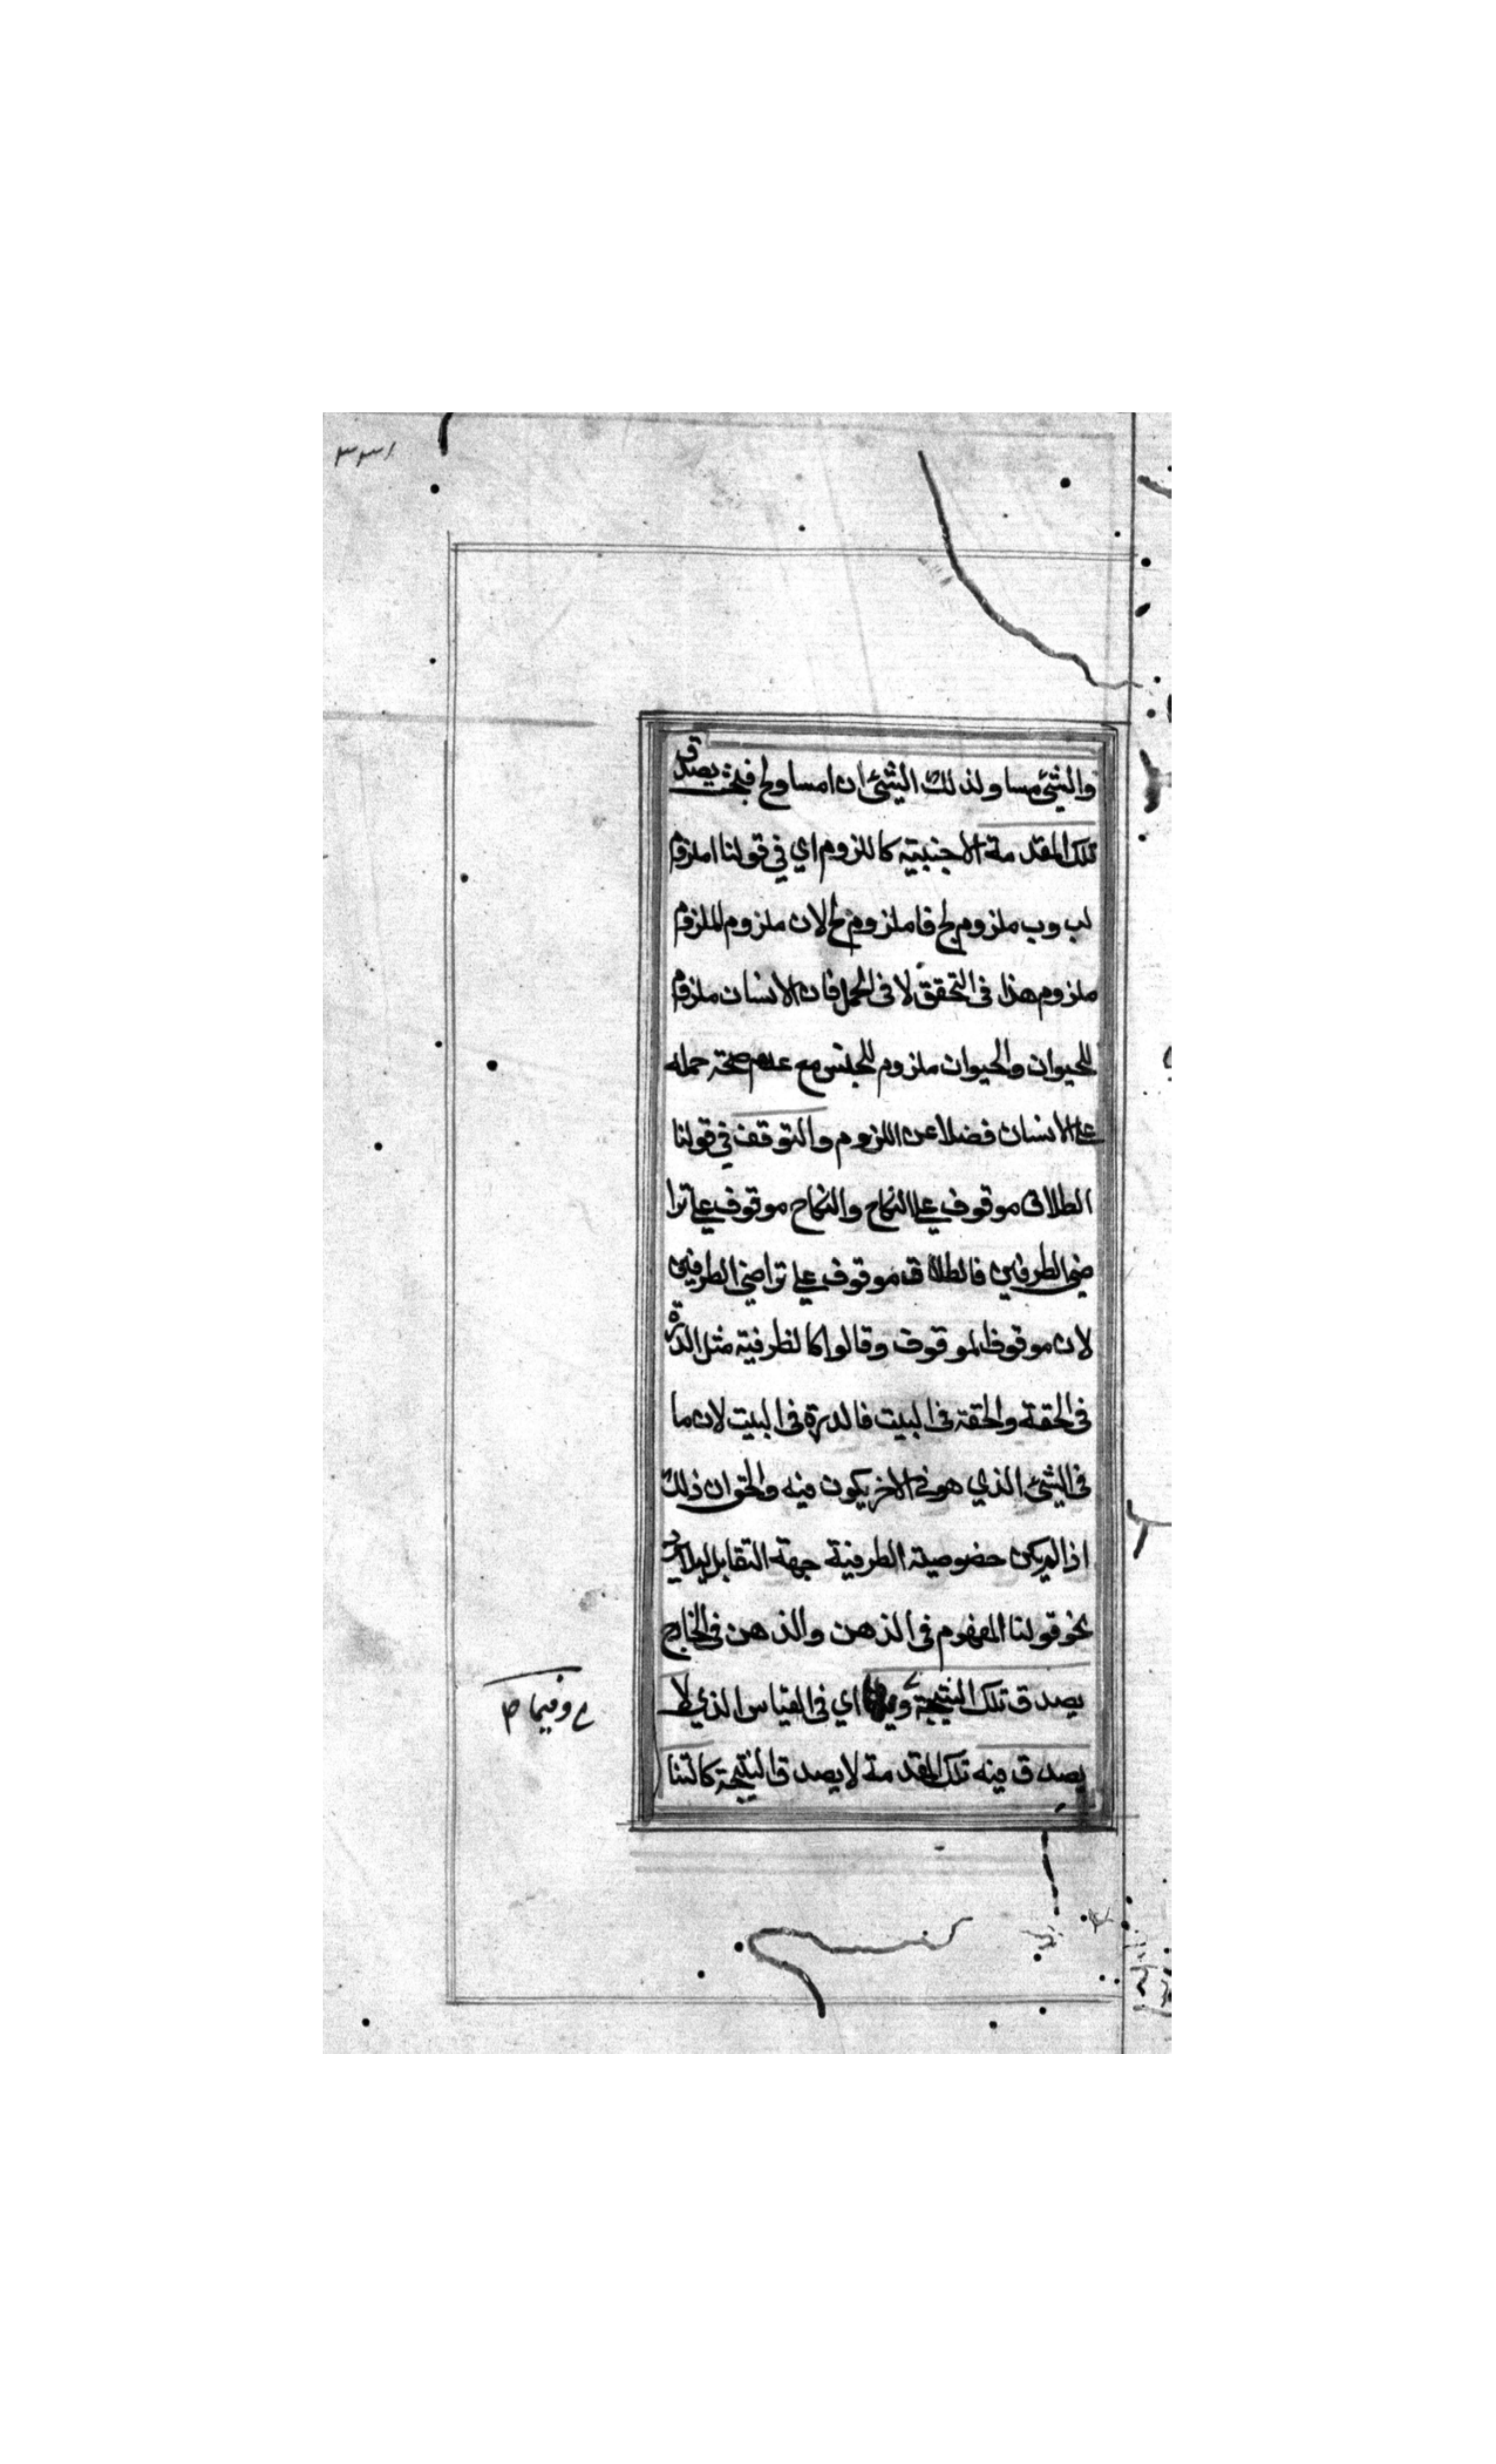 ٣٣١
والشئ مساو لذلك الشئ ان ا مساو لج فبحيث يصدق
تلك المقدمة الاجنبية كاللزوم اي في قولنا ا ملزوم
لب وب ملزوم لج فا ملزوم لج لان ملزوم الملزوم
ملزوم هذا فى التحقق لا فى الحمل فان الانسان ملزوم
للحيوان والحيوان ملزوم للجنس مع عدم صحة حمله
على الانسان فضلا عن اللزوم والتوقف في قولنا
الطلاق موقوف على النكاح والنكاح موقوف على ترا
ضى الطرفين فالطلاق موقوف على تراضي الطرفين
لان موقوف الموقوف وقالوا كالظرفية مثل الدرة
فى الحقة والحقة فى البيت فالدرة فى البيت لان ما
فى الشئ الذي هو فى الاخر يكون فيه والحق ان ذلك
اذا لم يكن خصوصية الظرفية جهة التقابل لئلا يرد
نحو قولنا المفهوم فى الذهن والذهن فى الخارج
يصدق تلك النتيجة اي فى القياس الذي لا
يصدق فيه تلك المقدمة لا يصدق النتيجة كالتنا
وفيما